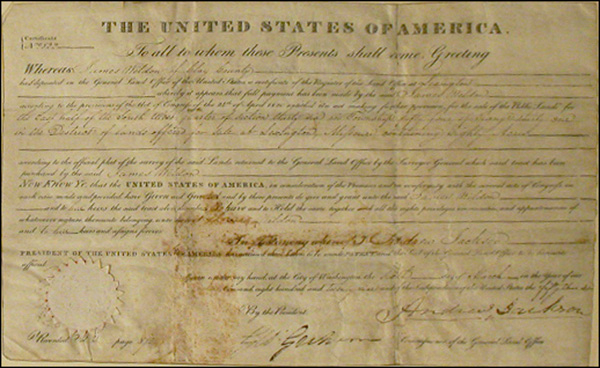 THE UNITED STATES OF AMERICA.
Certificate
No.
To all to whom these Presents shall come, Greeting
Whereas James Weldon of Clay County
has deposited in the General Land Office of the United States a certificate of the Register of the Land Office at Lexington
whereby it appears that full payment has been made by the said James Weldon
according to the provisions of the Act of Congress of the 24th of April 1820 entitled An act making further provision for the sale of the Public Lands for
the East half of the South quarter of Section thirty two in Township fifty of Range thirty one
in the District of Lands offered for sale at Lexington Missouri containing Eighty Acres
according to the official plat of the survey of the said Lands returned to the General Land Office by the Surveyor General which said tract has been
purchased by the said James Weldon
NOW KNOW YE, that the UNITED STATES OF AMERICA, in consideration of the Premises and in conformity with the several acts of Congress in
such case made and provided have Given and Granted and by these presents do give and grant unto the said James Weldon
and to his heirs the said tract above described To Have and to Hold the same together with all the rights privileges immunities and appurtenances of
whatsoever nature thereunto belonging unto the said James Weldon
and to his heirs and assigns forever
In Testimony whereof I Andrew Jackson
PRESIDENT OF THE UNITED STATES OF AMERICA have caused these Letters to be made PATENT and the Seal of the General Land Office to be hereunto
affixed
Given under my hand at the City of Washington the day of March in the Year of our
Lord one thousand eight hundred and and of the Independence of the United States the fifty
By the President Andrew Jackson
Recorded page Commissioner of the General Land Office